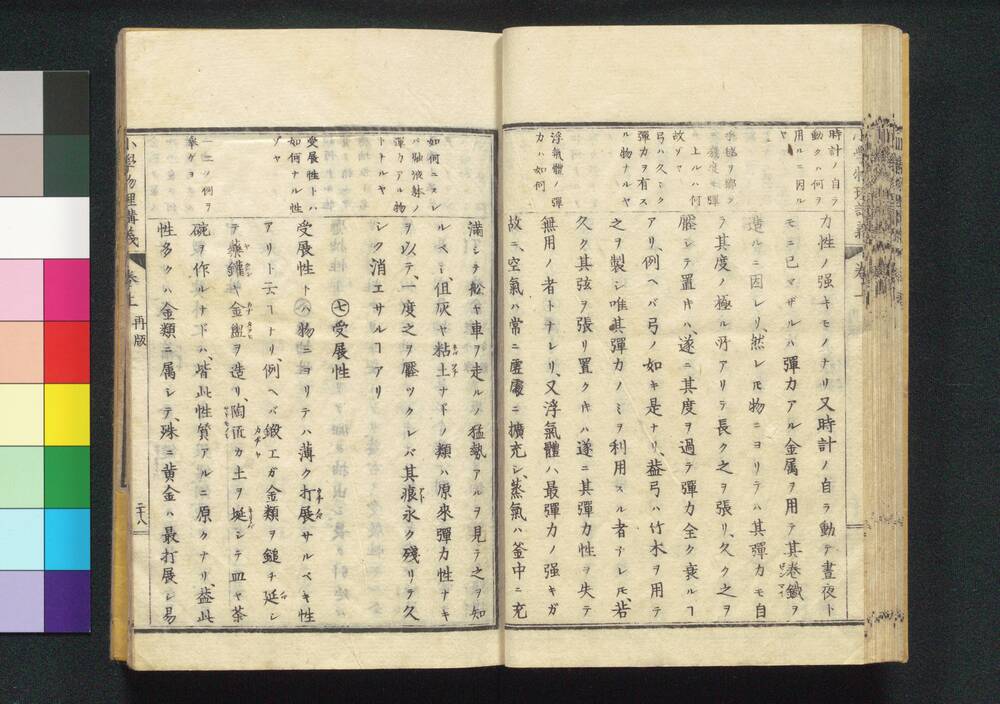 時計ノ自ラ
動クハ何ヲ
用ルニ因ル
ヤ
弓ハ久シク
彈力ヲ有ス
ル物ナルヤ
浮氣體ノ彈
力ハ如何
力性ノ强キモノナリ又時計ノ自ラ動テ晝夜ト
モニ已マザルハ彈力アル金属ヲ用テ其卷鐵ヲ
造ルニ因レリ、然レ𪜈物ニヨリテハ其彈力モ自
ラ其度ノ極ル所アリテ長ク之ヲ張リ、久ク之ヲ
壓シテ置キハ、遂ニ其度ヲ過テ彈力全ク衰ルヿ
アリ、例ヘバ弓ノ如キ是ナリ、蓋弓ハ竹木ヲ用テ
之ヲ製シ唯其彈力ノミヲ利用スル者ナレ𪜈、若
久ク其弦ヲ張リ置クキハ遂ニ其彈力性ヲ失テ
無用ノ者トナレリ、又浮氣體ハ最彈力ノ强キガ
故ニ、空氣ハ常ニ虛處ニ擴充シ、蒸氣ハ釜中ニ充
如何ニスレ
彈力アル物
トナルヤ
受展性トハ
如何ナル性
ゾヤ
一二ノ例ヲ
擧ゲヨ
滿シテ舩ヤ車ヲ走ルノ猛勢アルヲ見テ之ヲ知
ルベシ、但灰ヤ粘土ナドノ類ハ原來彈力性ナキ
ヲ以テ、一度之ヲ壓ツクレバ其痕永ク殘リテ久
シク消エサルヿアリ
㊆受展性
受展性トハ物ニヨリテハ薄ク打展サルベキ性
アリト云ヿナリ、例ヘバ鍛工ガ金類ヲ鎚チ延シ
テ藥鑵ヤ金盥ヲ造リ、陶匠カ土ヲ埏シテ皿ヤ茶
碗ヲ作ルナドハ、皆此性質アルニ原クナリ、蓋此
性多クハ金類ニ属シテ、殊ニ黄金ハ最打展シ易
小學物理講義 卷上 再版
二十八